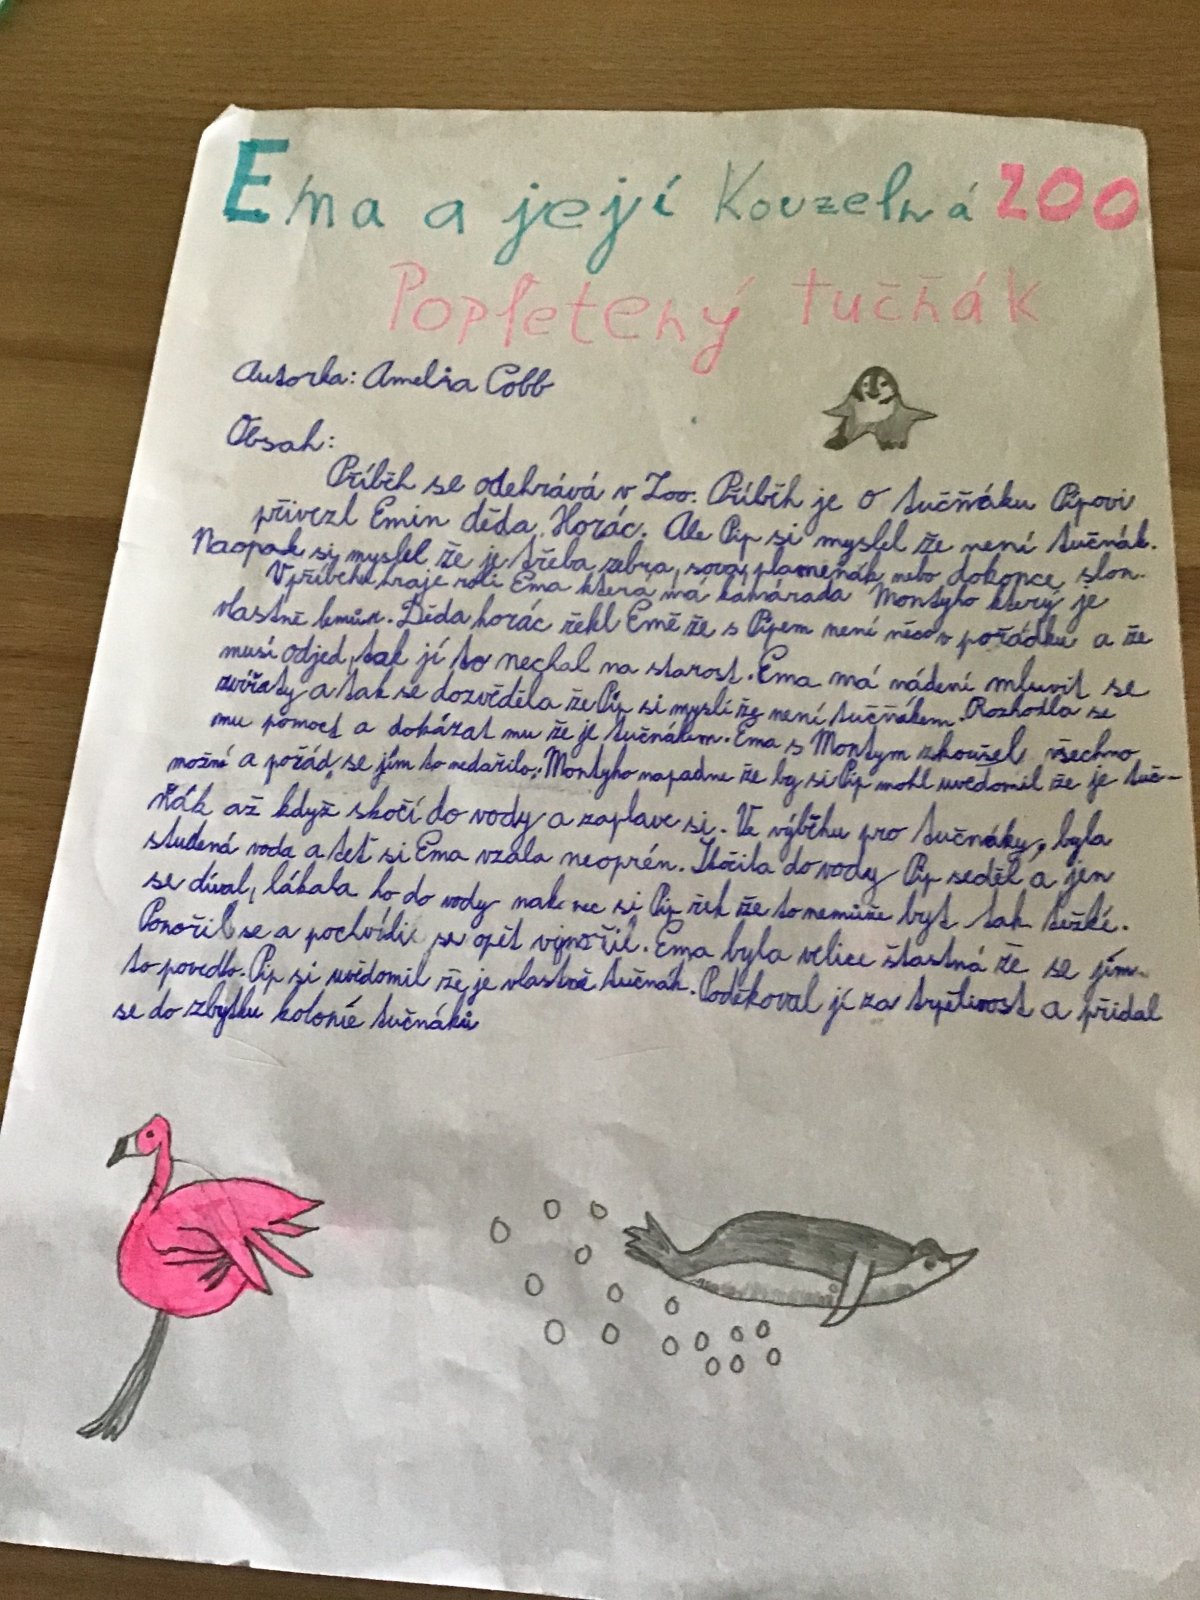 Ema a její Kouzelná ZOO
Popletený tučňák
Autorka: Amelia Cobb
Obsah:
Příběh se odehrává v Zoo. Příběh je o tučňáku Pipovi
přivezl Emin děda Horác. Ale Pip si myslel že není tučňák.
Naopak si myslel že je třeba zebra, sova, plameňák nebo dokonce slon.
V příběhu hraje roli Ema která má kamaráda Montyho který je
vlastně lemur. Děda horác řekl Emě že s Pipem není něco v pořádku a že
musí odjed, tak jí to nechal na starost. Ema má nádení mluvit se
zvířaty a tak se dozvěděla že Pip si myslí že není tučňákem. Rozhodla se
mu pomoct a dokázat mu že je tučnákem. Ema s Montym zkoušel všechno
možní a pořád se jím to nedařilo. Montyho napadne že by si Pip mohl uvědomil že je tuč-
ňák až když skočí do vody a zaplave si. Ve výběhu pro tučnáky, byla
studená voda a teť si Ema vzala neoprén. Skočila do vody Pip seděl a jen
se díval, lákala ho do vody nak nec si Pip řek že to nemůže byt tak težkí.
Ponořil se a pochvídli se opět vynořil. Ema byla velice šťastná že se jím
to povedlo. Pip si uvědomil že je vlastně tučnák. Poděkoval jí za trpělivost a přidal
se do zbytku kolonie tučnáků